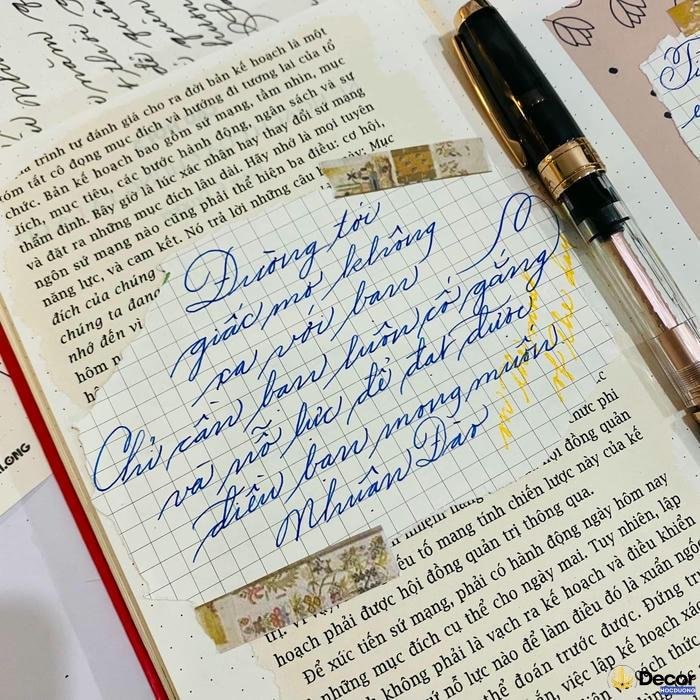 trình tự đánh giá cho ra đời bản kế hoạch là một
tóm tắt cô đọng mục đích và hướng đi tương lai của tổ
chức. Bản kế hoạch bao gồm sứ mạng, tầm nhìn, mục
đích, mục tiêu, các bước hành động, ngân sách và sự
thẩm định. Bây giờ là lúc xác nhận hay thay đổi sứ mạng
và đặt ra những mục đích lâu dài. Hãy nhớ là mọi tuyên
ngôn sứ mạng nào cũng phải thể hiện ba điều: cơ hội,
năng lực, và cam kết. Nó trả lời những câu này: Mục
đích của chúng
chúng ta đang
nhớ đến vì
hôm
Đường tới
giấc mơ không
xa với bạn
Chỉ cần bạn luôn cố gắng
và nỗ lực để đạt được
điều bạn mong muốn
Nhuân Đào
of the
LONG
mức phí
hội đồng quản
yếu tố mang tính chiến lược này của kế
hoạch phải được hội đồng quản trị thông qua.
Để xúc tiến sứ mạng, phải có hành động ngày hôm nay
những mục đích cụ thể cho ngày mai. Tuy nhiên, lập
không phải là vạch ra kế hoạch và điều khiển
nỗ lực nào để làm điều đó là xuẩn ngốc
đoán trước được. Đứng
việc lập kế hoạch
Decor
HOCDUONG